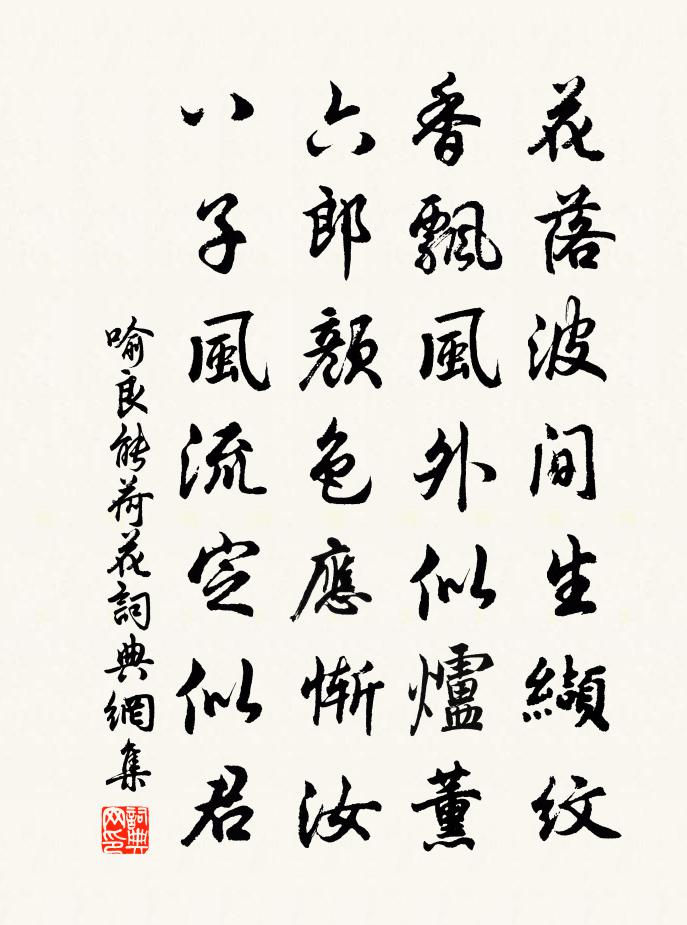 花落波間生纈紋
香飄風外似爐薰
六郎顏色應慚汝
八子風流定似君
喻良能荷花詞典網集
詞典網印